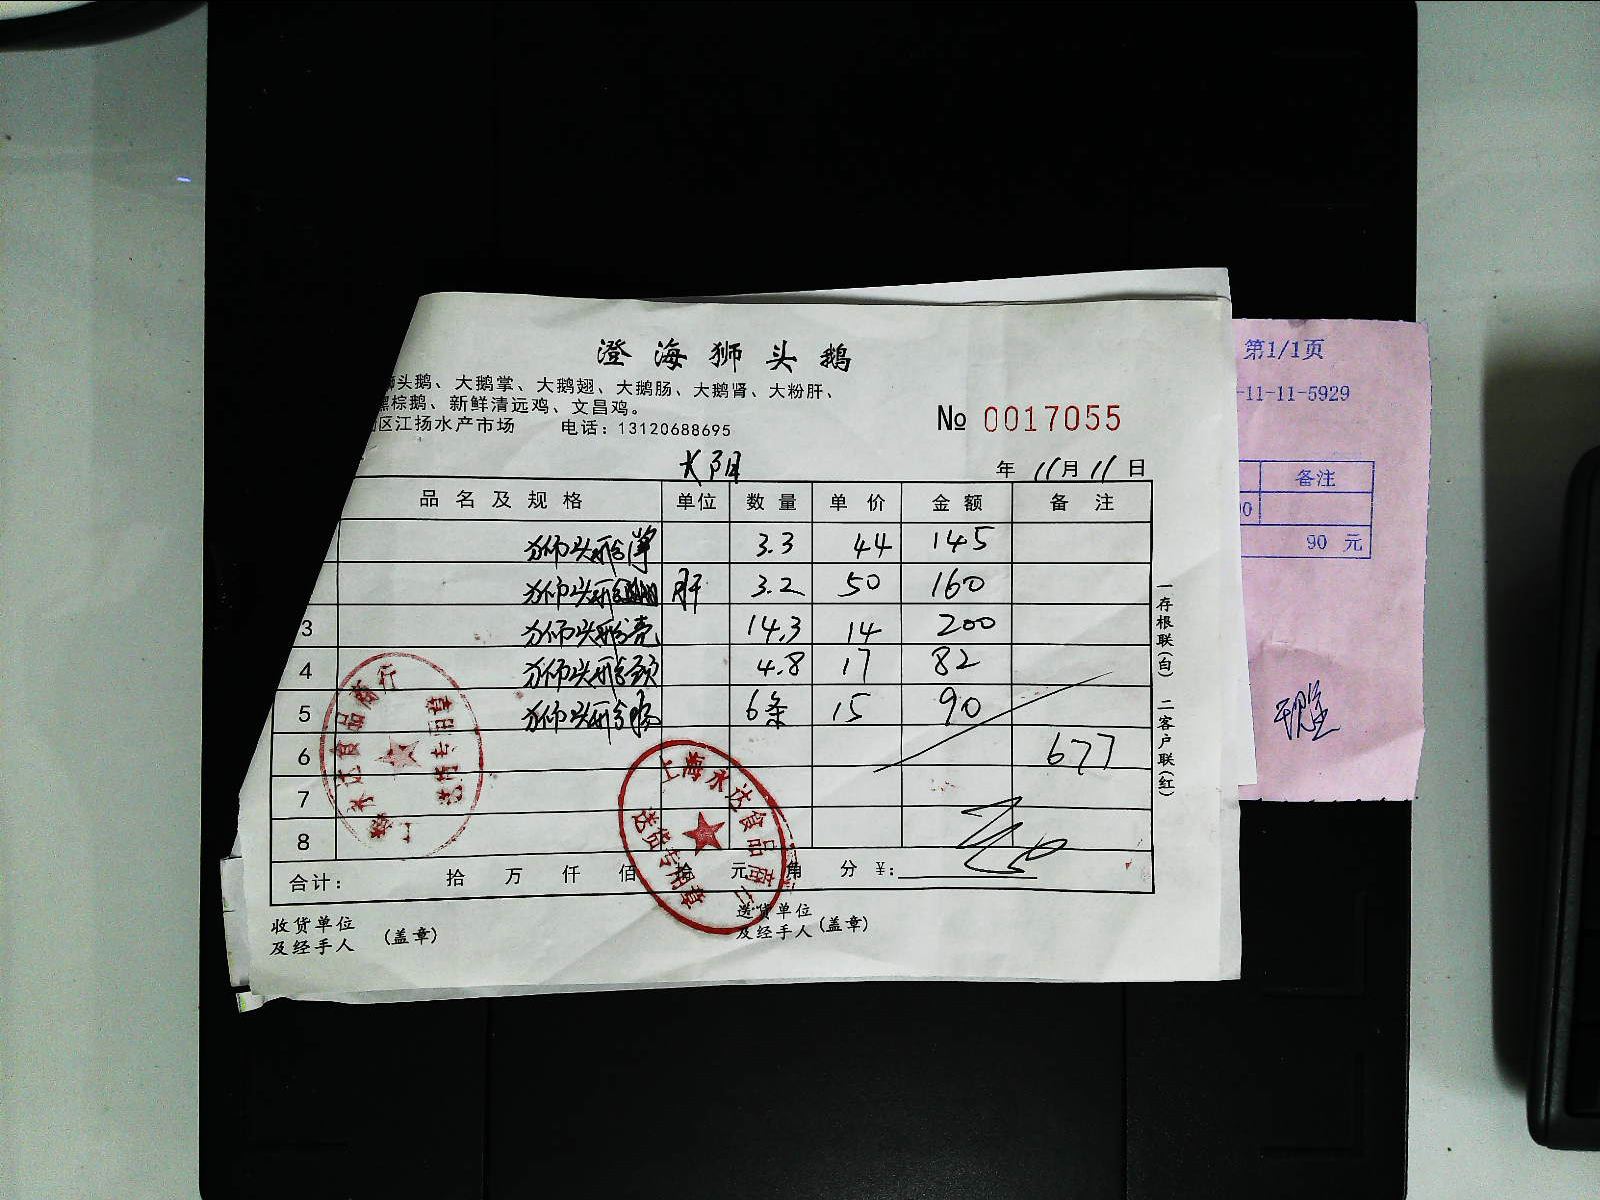 澄海狮头鹅
狮头鹅、大鹅掌、大鹅翅、大鹅肠、大鹅肾、大粉肝、
黑棕鹅、新鲜清远鸡、文昌鸡。
区江扬水产市场 电话：13120688695
№ 0017055
年 11月 11日
品名及规格 单位 数量 单价 金额 备注
狮头鹅掌 3.3 44 145
狮头鹅 肝 3.2 50 160
3 狮头鹅壳 14.3 14 200
4 狮头鹅颈 4.8 17 82
5 狮头鹅肠 6条 15 90
6 677
7
8
合计： 拾 万 仟 佰 拾 元 角 分 ¥:
收货单位
及经手人 (盖章)
送货单位
及经手人 (盖章)
一存根联(白) 二客户联(红)
上海永达食品商行
送货专用章
上海永达食品商行
第1/1页
-11-11-5929
备注
90 元